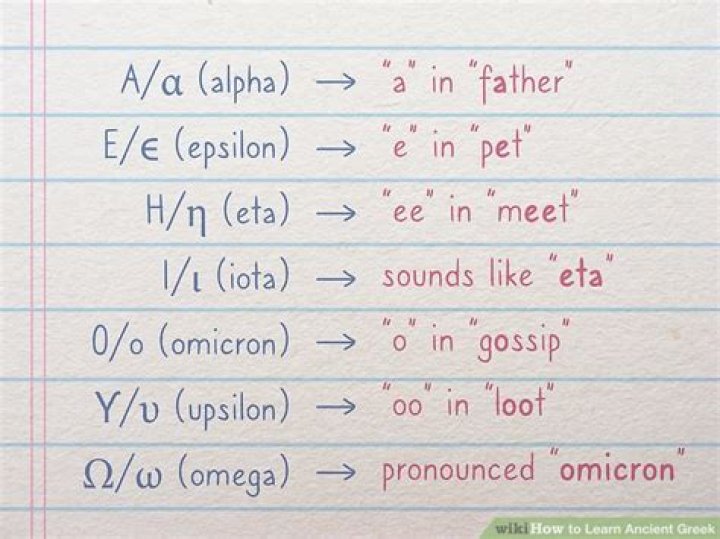 Α/α (alpha) → "a" in "father"
Ε/ϵ (epsilon) → "e" in "pet"
Η/η (eta) → "ee" in "meet"
Ι/ι (iota) → sounds like "eta"
Ο/ο (omicron) → "o" in "gossip"
Υ/υ (upsilon) → "oo" in "loot"
Ω/ω (omega) → pronounced "omicron"
wikiHow to Learn Ancient Greek